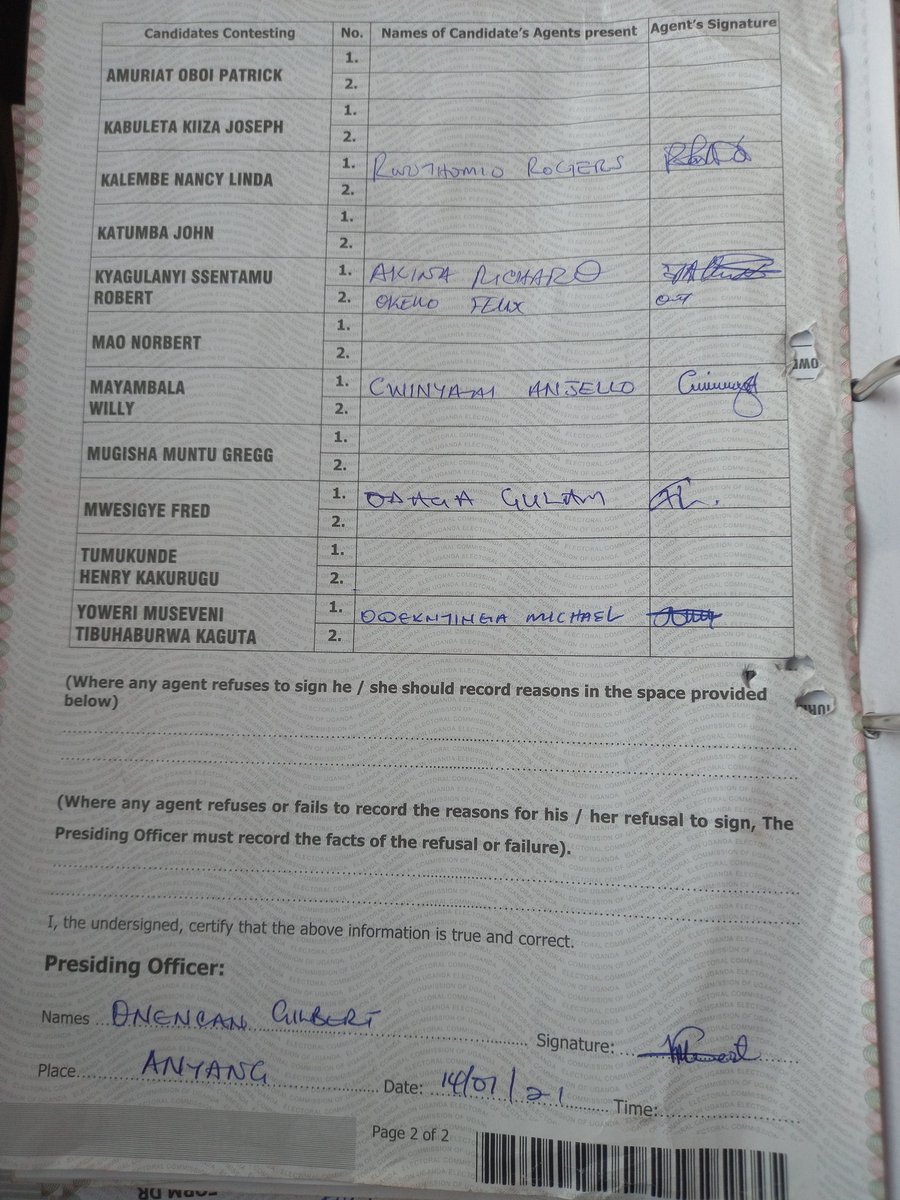 Candidates Contesting No. Names of Candidate's Agents present Agent's Signature
AMURIAT OBOI PATRICK 1.
2.
KABULETA KIIZA JOSEPH 1.
2.
KALEMBE NANCY LINDA 1. ROGERS
2.
KATUMBA JOHN 1.
2.
KYAGULANYI SSENTAMU
ROBERT
1. AKINA RICHARD
2. OKELLO FELIX
MAO NORBERT 1.
2.
MAYAMBALA
WILLY
1. CWINYAAI ANJELLO
2.
MUGISHA MUNTU GREGG 1.
2.
MWESIGYE FRED 1. ODAGA GULAM
2.
TUMUKUNDE
HENRY KAKURUGU
1.
2.
YOWERI MUSEVENI
TIBUHABURWA KAGUTA
1. MICHAEL
2.
(Where any agent refuses to sign he / she should record reasons in the space provided
below)
(Where any agent refuses or fails to record the reasons for his / her refusal to sign, The
Presiding Officer must record the facts of the refusal or failure).
I, the undersigned, certify that the above information is true and correct.
Presiding Officer:
Names ONENCAN GILBERT Signature:
Place ANYANG Date: 14/01/21 Time:
Page 2 of 2